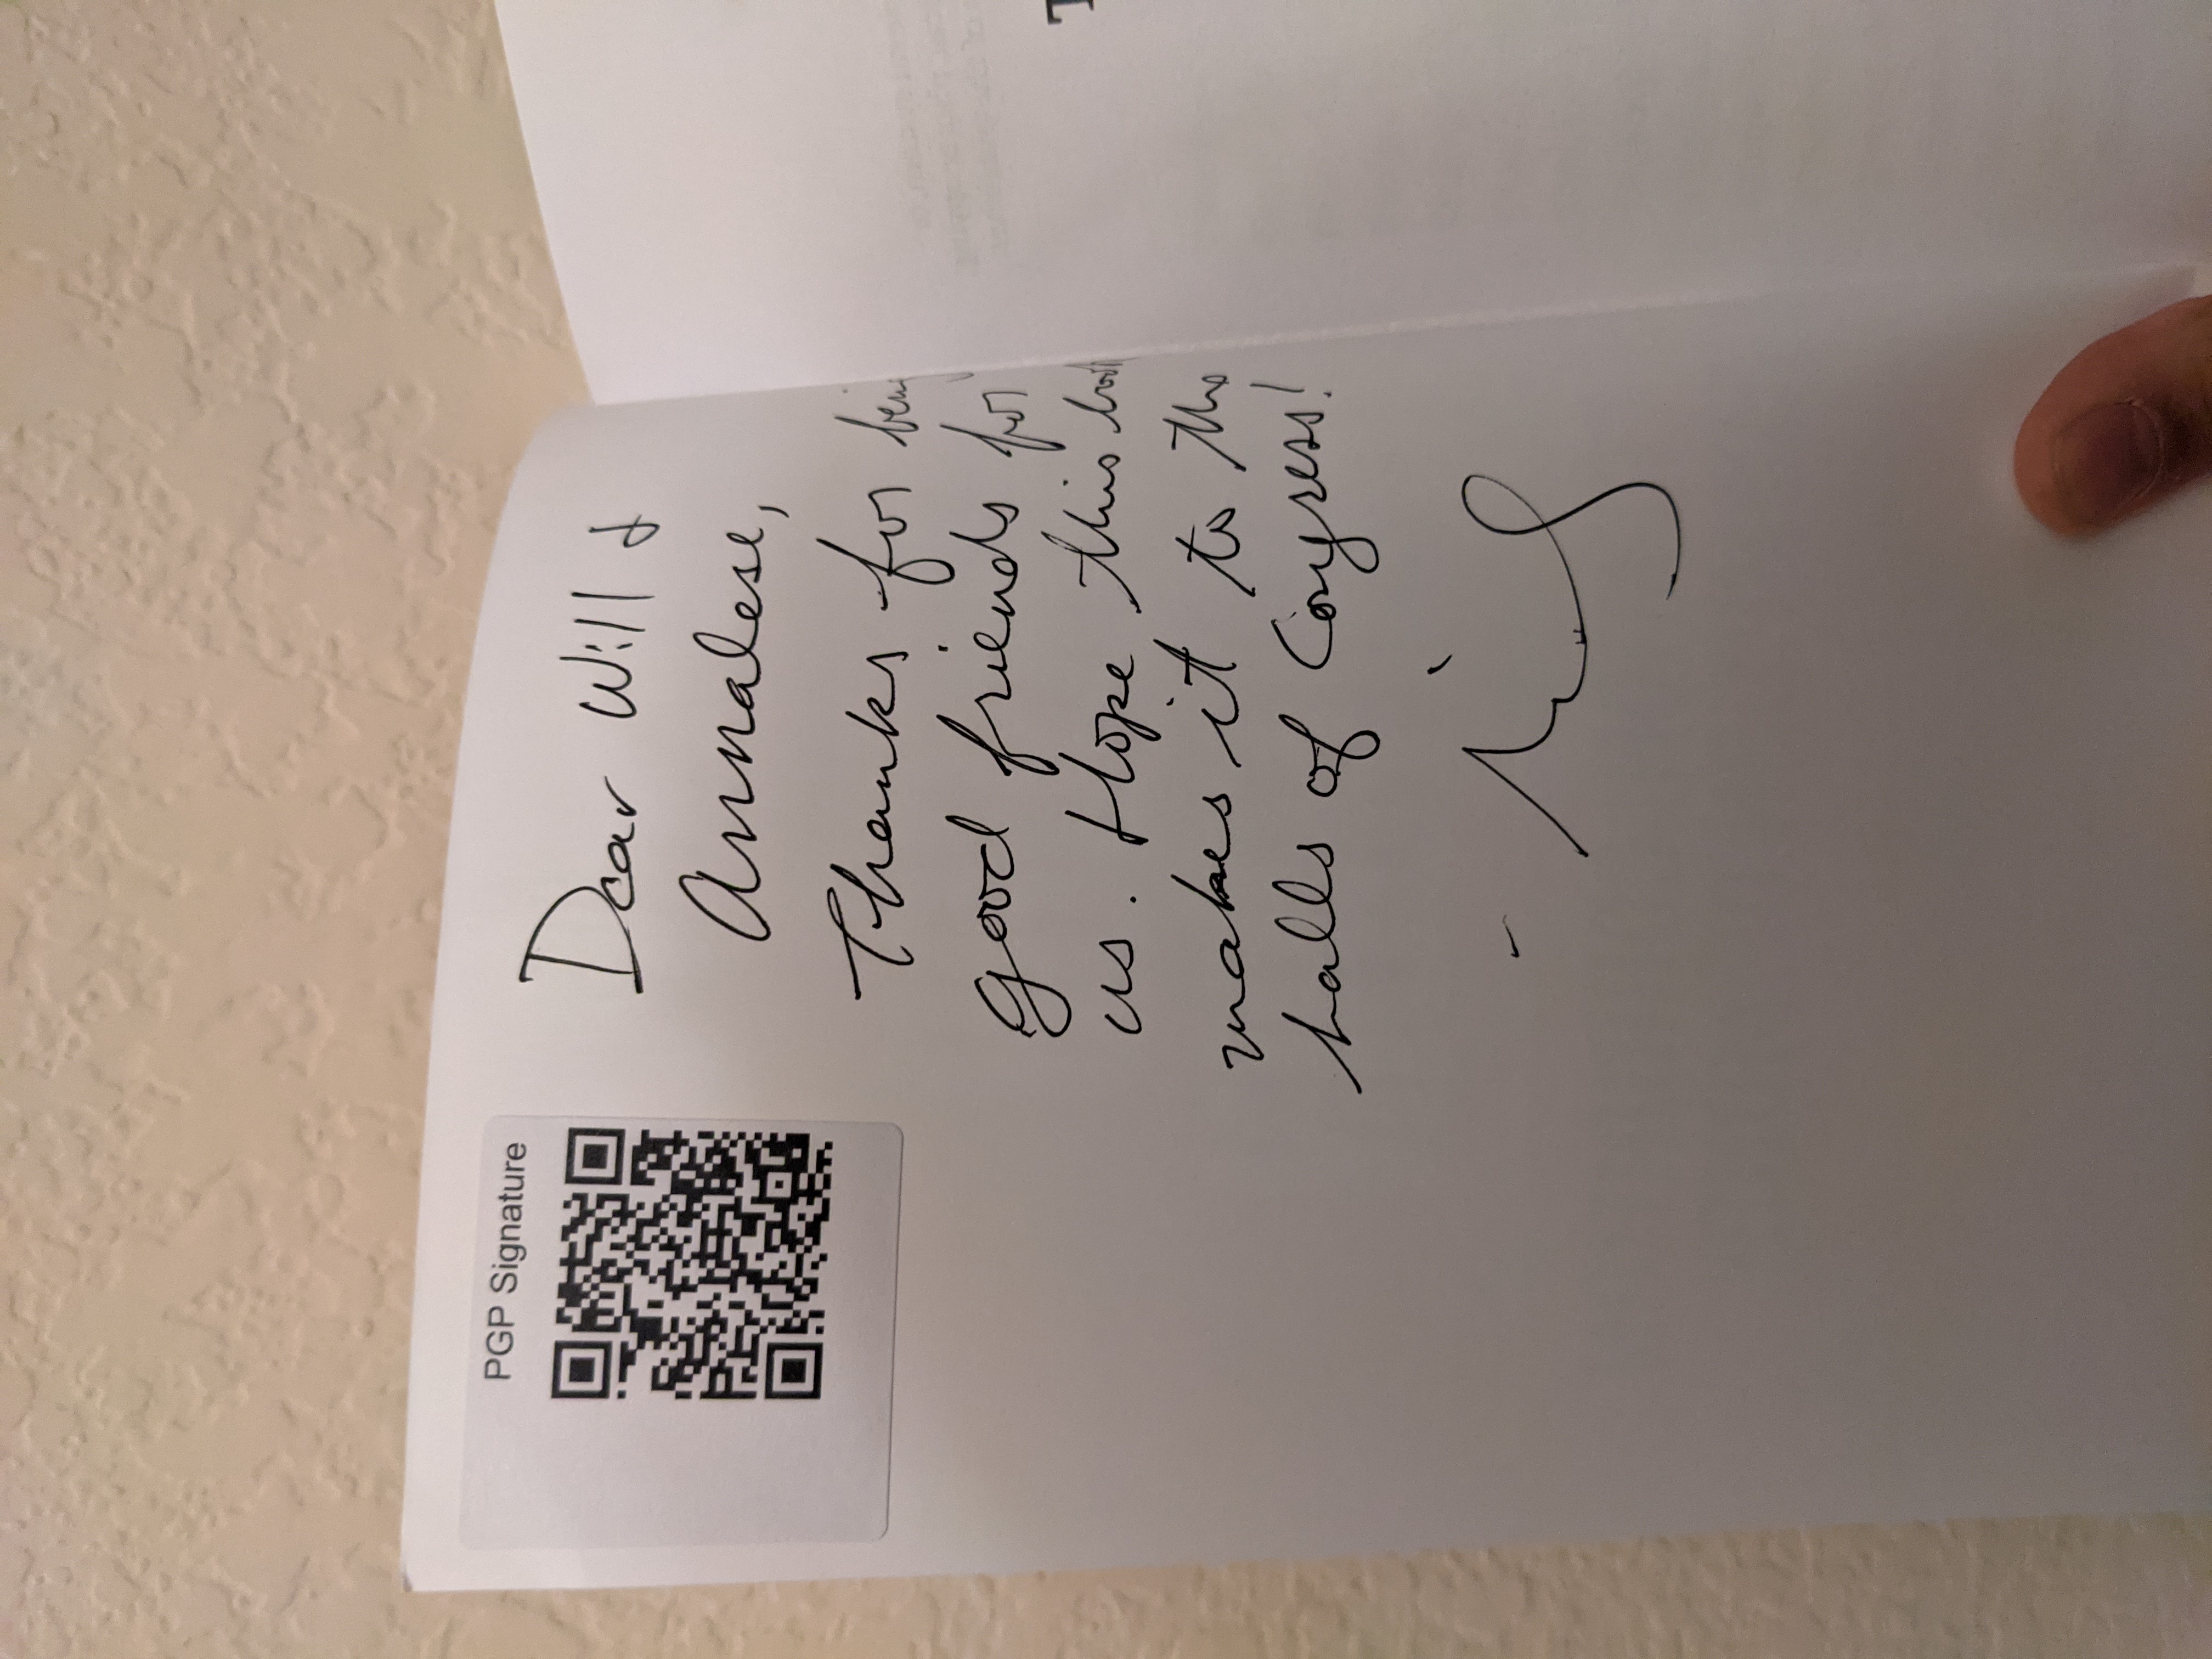 PGP Signature
Dear Will &
Annalese,
Thanks for being
good friends for
us. Hope this book
makes it to the
halls of Congress!